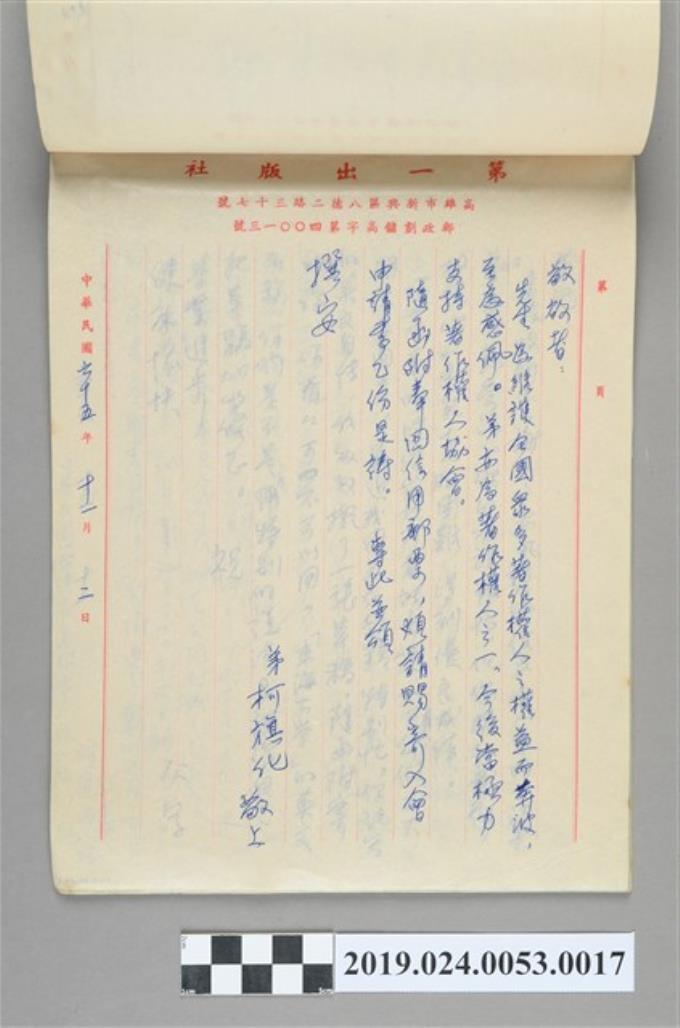 第一出版社
高雄市新興區八德二路三十七號
郵政劃儲高字第四〇〇一三號
第 頁
敬啟者：
先生為維護全國眾多著作權人之權益而奔波，
至為感佩。弟亦為著作權人之一，今後當極力
支持著作權人協會。
隨函附奉回信用郵票，煩請賜寄入會
申請書乙份是禱。專此並頌
撰安
弟柯旗化敬上
中華民國六十五年十二月十二日
2019.024.0053.0017